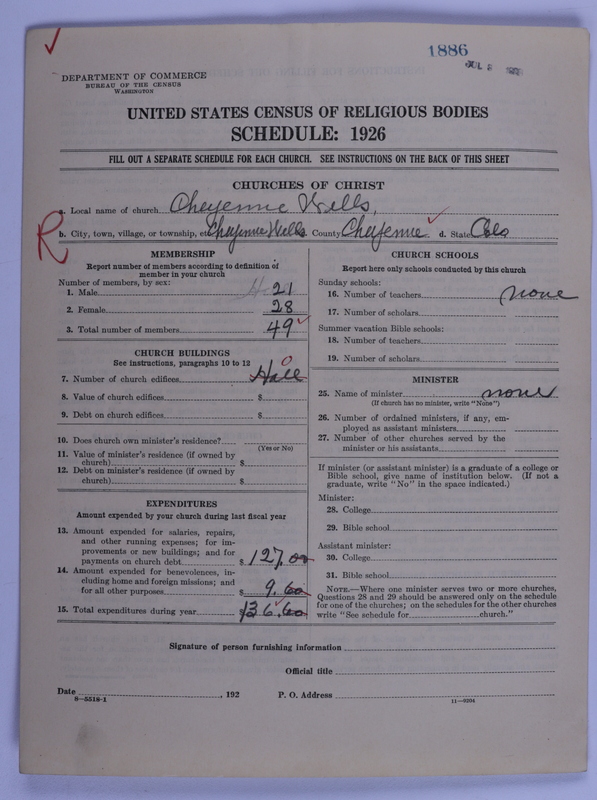 1886
JUL 2
DEPARTMENT OF COMMERCE
BUREAU OF THE CENSUS
WASHINGTON
UNITED STATES CENSUS OF RELIGIOUS BODIES
SCHEDULE: 1926
FILL OUT A SEPARATE SCHEDULE FOR EACH CHURCH. SEE INSTRUCTIONS ON THE BACK OF THIS SHEET
CHURCHES OF CHRIST
a. Local name of church Cheyenne Wells,
b. City, town, village, or township, etc. Cheyenne Wells County Cheyenne d. State Colo
R
MEMBERSHIP
Report number of members according to definition of
member in your church
Number of members, by sex:
1. Male 21
2. Female 28
3. Total number of members 49
CHURCH BUILDINGS
See instructions, paragraphs 10 to 12
7. Number of church edifices Hall 0
8. Value of church edifices $
9. Debt on church edifices $
10. Does church own minister's residence?
(Yes or No)
11. Value of minister's residence (if owned by
church) $
12. Debt on minister's residence (if owned by
church) $
EXPENDITURES
Amount expended by your church during last fiscal year
13. Amount expended for salaries, repairs,
and other running expenses; for im-
provements or new buildings; and for
payments on church debt $ 127.00
14. Amount expended for benevolences, in-
cluding home and foreign missions; and
for all other purposes $ 9.60
15. Total expenditures during year $ 136.60
CHURCH SCHOOLS
Report here only schools conducted by this church
Sunday schools:
16. Number of teachers none
17. Number of scholars
Summer vacation Bible schools:
18. Number of teachers
19. Number of scholars
MINISTER
25. Name of minister none
(If church has no minister, write "None")
26. Number of ordained ministers, if any, em-
ployed as assistant ministers
27. Number of other churches served by the
minister or his assistants
If minister (or assistant minister) is a graduate of a college or
Bible school, give name of institution below. (If not a
graduate, write "No" in the space indicated.)
Minister:
28. College
29. Bible school
Assistant minister:
30. College
31. Bible school
NOTE.—Where one minister serves two or more churches,
Questions 28 and 29 should be answered only on the schedule
for one of the churches; on the schedules for the other churches
write "See schedule for church."
Signature of person furnishing information
Official title
Date , 192 P. O. Address
8—5518-1 11—9204